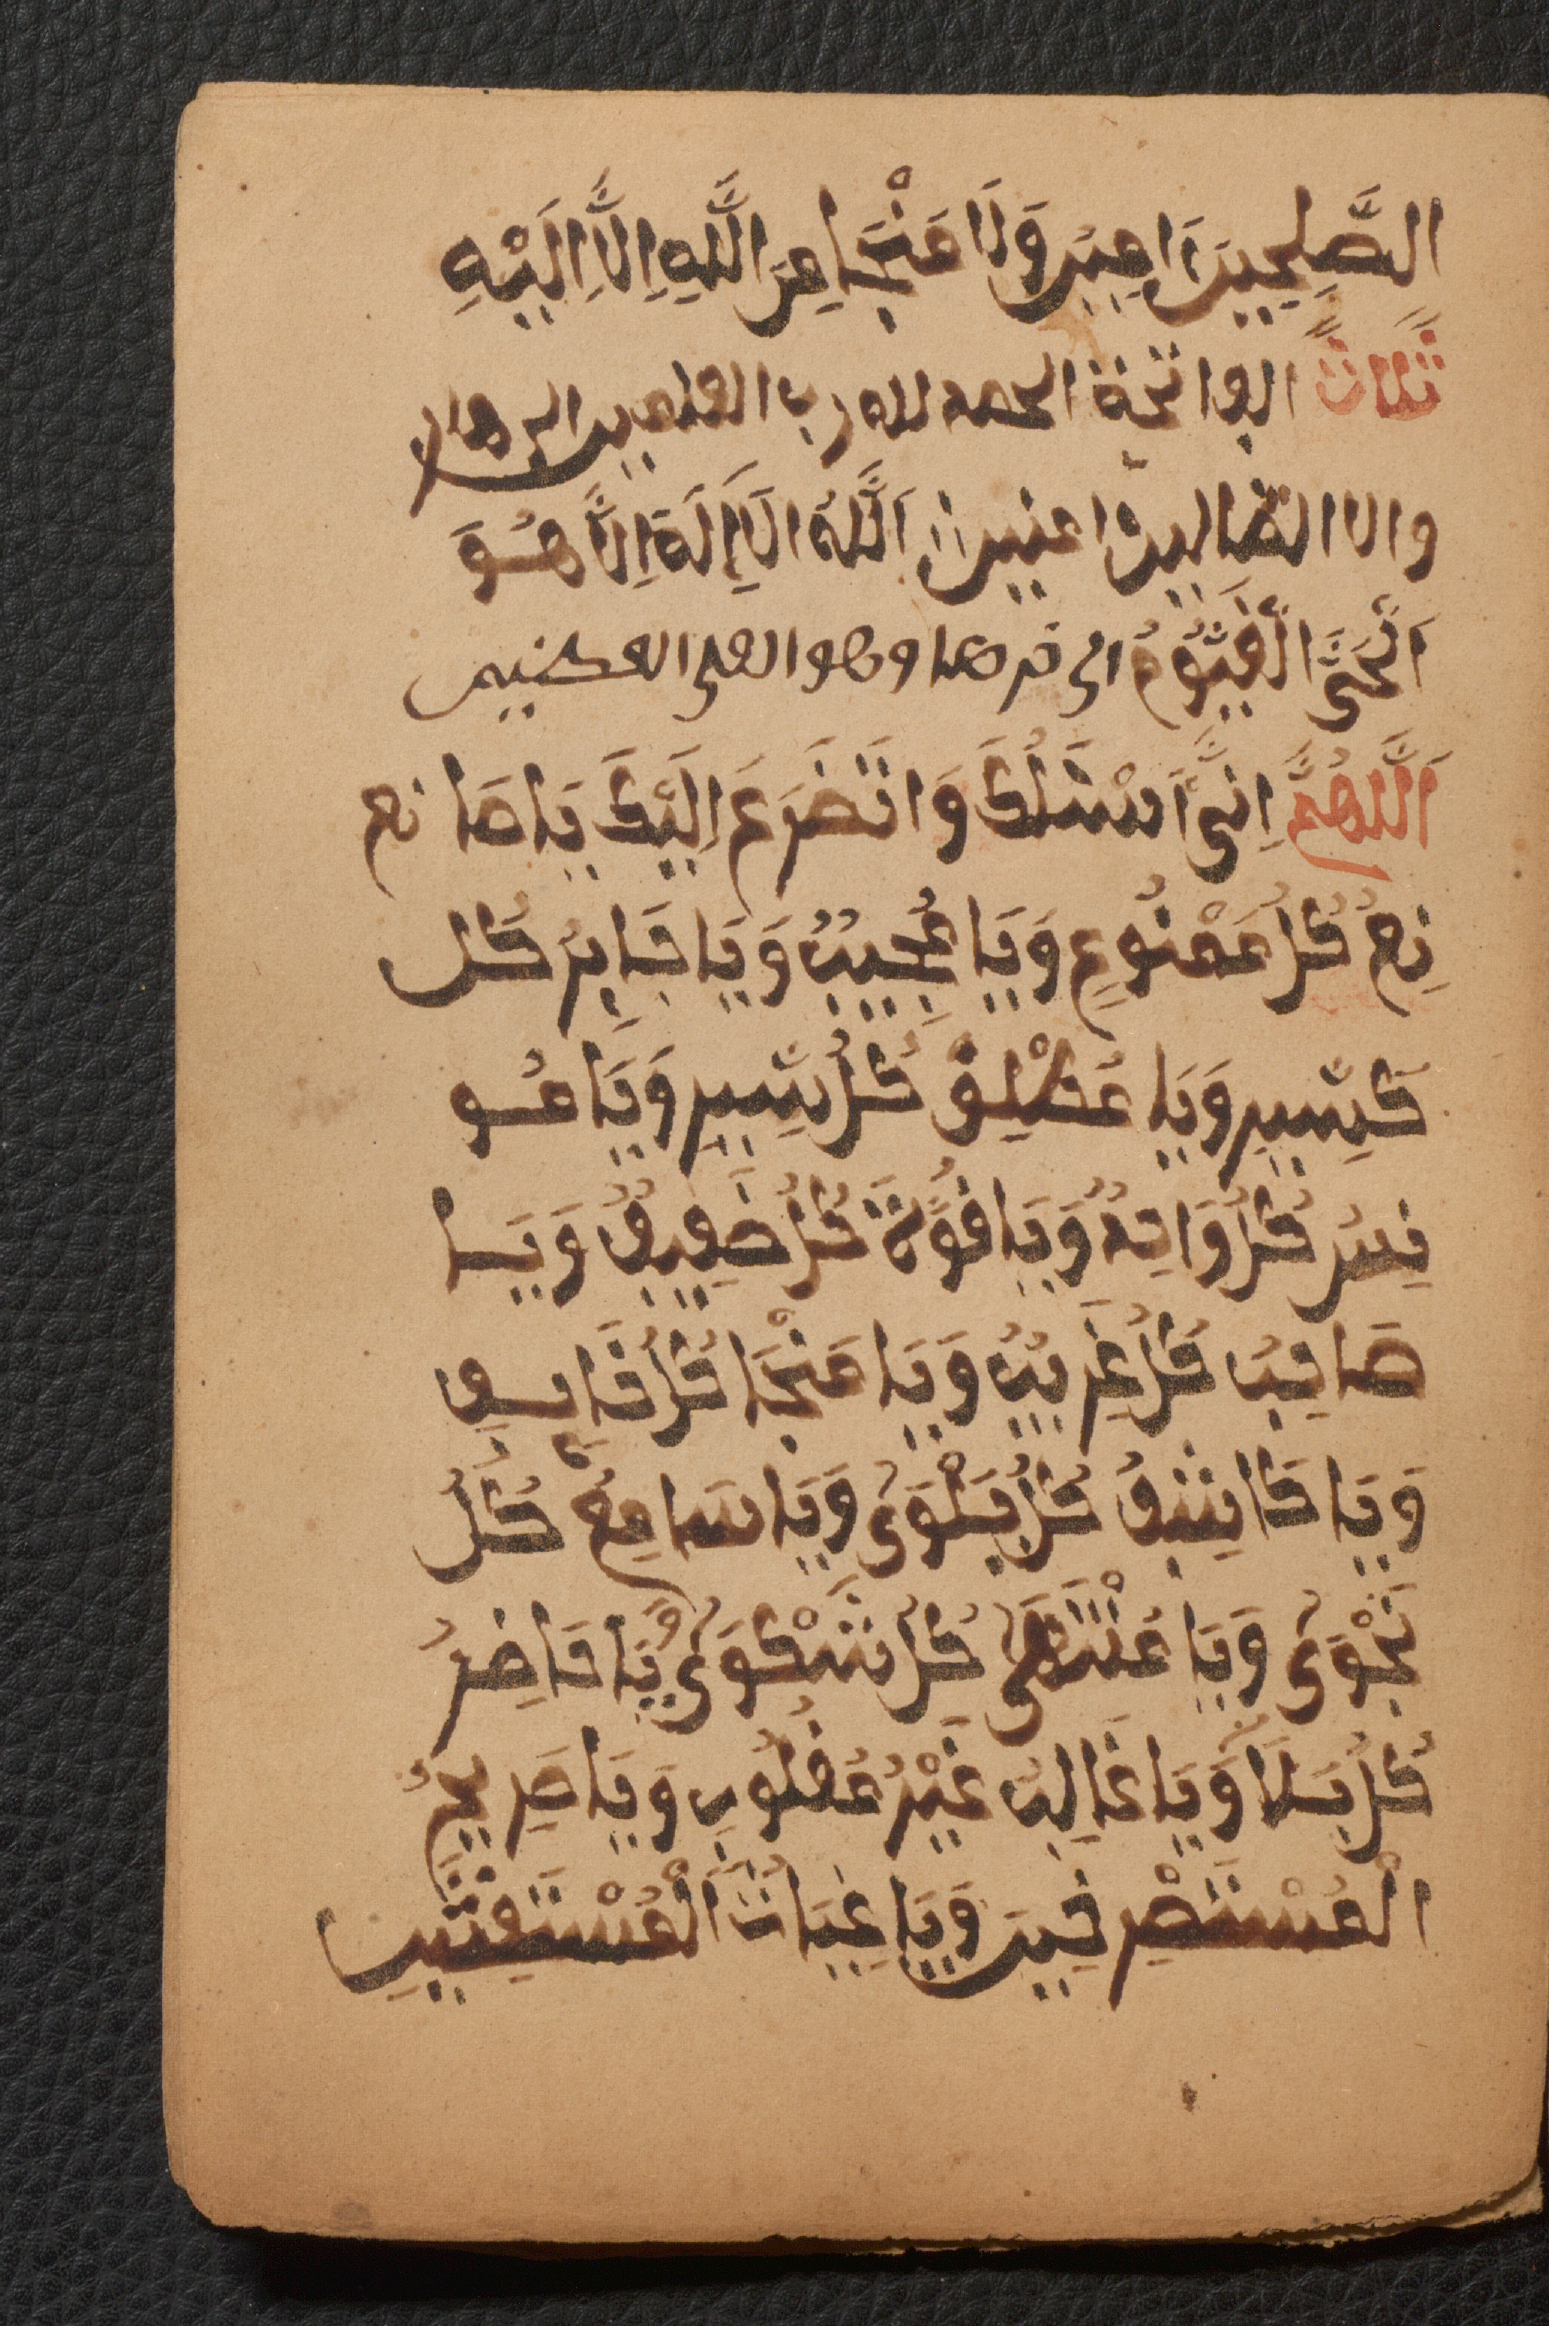 الصَّلِحِينَ امِينَ وَلَا مَنْجَا مِنَ اللَّهِ اِلَّا اِلَيْهِ
ثَلَاثًا الفاتحة الحمد لله رب العلمين الرحمن
ولا الضالين امين اَللَّهُ لَا إِلَهَ اِلَّا هُوَ
اَلْحَيُّ الْقَيُّومُ الى وهو العلى العظيم
اَللَّهُمَّ اِنِّى اَسْئَلُكَ وَاتَضَرَعَ اِلَيْكَ يَا صَانِع
نِعُ كُلُ مَصْنُوعٍ وَيَا مُجِيبُ وَيَا جَابِرُ كُل
كَسِّيرٍ وَيَا مُطْلِقُ كُلُ سِّيرٍ وَيَا مُو
نِسُ كُلُ وَاحِدُ وَيَا قُوَّةَ كُلُ ضَعِيفُ وَيَا
صَاحِبُ كُلُ غَرِيبُ وَيَا مَنْجَا كُلُ خَايِفٍ
وَيَا كَاشِفُ كُلُ بَلْوَى وَيَا سَامِعُ كُلُ
نَجْوَى وَيَا مُنْتَهَى كُلُ شَكْوَى يَا حَاضِرُ
كُلُ بَلَا وَيَا غَالِبُ غَيْرُ مَغْلُوبٍ وَيَا صَرِيخُ
الْمُسْتَصْرِخِينَ وَيَا غِيَاثَ الْمُسْتَغِثِينَ